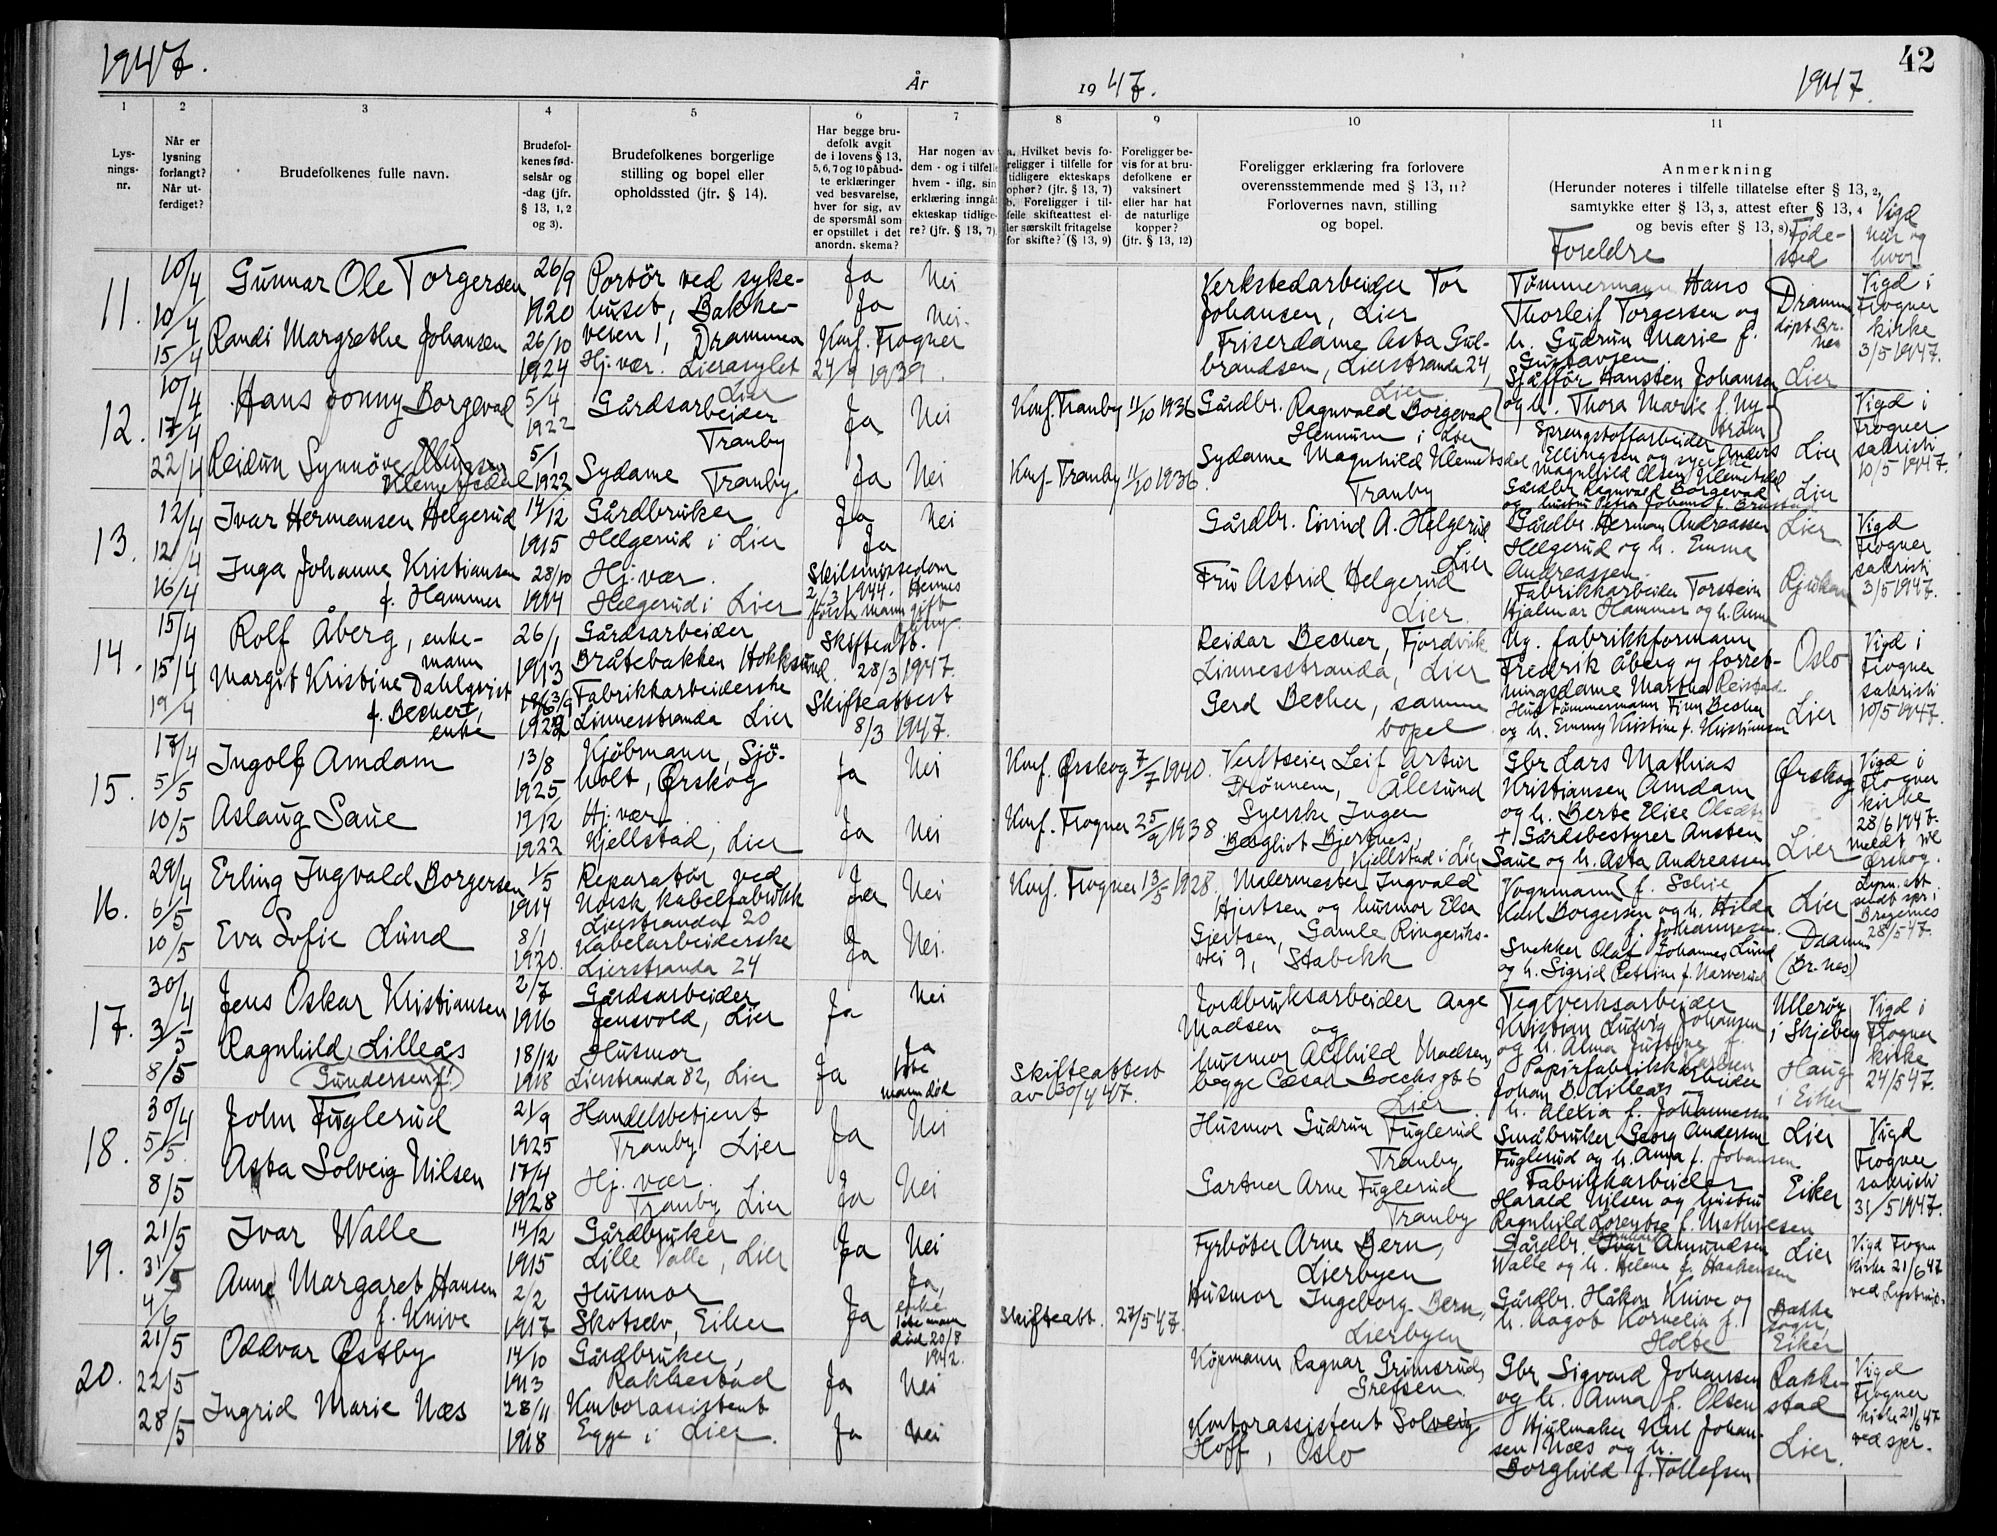 1947.
År
19 47.
1947.
42
1
2
3
4
5
6
7
8
9
10
11
Lys-
nings-
nr.
Når er
lysning
forlangt?
Når ut-
ferdiget?
Brudefolkenes fulle navn.
Brudefol-
kenes fød-
selsår og
-dag (jfr.
§ 13, 1, 2
og 3).
Brudefolkenes borgerlige
stilling og bopel eller
opholdssted (jfr. § 14).
Har begge bru-
defolk avgit
de i lovens § 13,
5, 6, 7 og 10 påbud-
te erklæringer
ved besvarelse,
hver for sig, av
de spørsmål som
er opstillet i det
anordn. skema?
Har nogen av
dem - og i tilfelle
hvem - iflg. sin
erklæring inngå
ekteskap tidlige-
re? (jfr. § 13, 7)
a. Hvilket bevis fo-
religger i tilfelle for
tidligere ekteskaps
ophør? (jfr. § 13, 7)
b. Foreligger i til-
felle skifteattest el-
ler særskilt fritagelse
for skifte? (§ 13, 9)
Foreligger be-
vis for at bru-
defolkene er
vaksinert
eller har hat
de naturlige
kopper?
(jfr. § 13, 12)
Foreligger erklæring fra forlovere
overensstemmende med § 13, 11?
Forlovernes navn, stilling
og bopel.
Anmerkning
(Herunder noteres i tilfelle tillatelse efter § 13, 2,
samtykke efter § 13, 3, attest efter § 13, 4
og bevis efter § 13, 8).
Foreldre
Føde-
sted
Vigd
når og
hvor
11.
10/4
10/4
15/4
Gunnar Ole Torgersen
Randi Margrethe Johansen
26/9
1920
26/10
1924
Portör ved syke-
huset, Bakke-
veien 1, Drammen
Hj. vær. Lierasylet
Lier
Ja Nei
Ja Nei.
Konf. Frogner
24/9 1939.
Verkstedarbeider Tor
Johansen, Lier
Friserdame Asta Gul-
brandsen, Lierstranda 24,
Lier
Tømmermann Hans
Thorleif Torgersen og
h. Gudrun Marie f.
Gustavsen
Sjåffør Hansten Johansen
og h. Thora Marie f. Ny-
strøm
Dramm
døpt Br.
nes
Lier
Vigd i
Frogner
kirke
3/5 1947.
12.
10/4
17/4
22/4
Hans Jonny Borgevad
Reidun Synnöve
Klemetsdal
5/4
1922
5/1
1922
Gårdsarbeider
Tranby
Sydame
Tranby
Ja Nei
Ja Nei
Konf. Tranby 11/10 1936
Konf. Tranby 11/10 1936
Gårdbr. Ragnvald Borgevad
Hennum i Lier
Sydame Magnhild Klemetsdal
Tranby
Sprengstoffarbeider Anders
Ellingsen og syerske
Magnhild Olsen Klemetsdal
Gårdbr Ragnvald Borgevad
og hustru Petra Johanne f.
Lier
Lier
Vigd i
Frogner
sakristi
10/5 1947.
13.
12/4
12/4
16/4
Ivar Hermansen Helgerud
Inga Johanne Kristiansen
f. Hammer
14/12
1915
28/10
1914
Gårdbruker
Helgerud i Lier
Hj. vær.
Helgerud i Lier
Ja Nei
Ja
Skilsmissedom
2/3 1944. Hennes
første mann gift
Gårdbr. Eivind A. Helgerud
Lier
Fru Astrid Helgerud
Lier.
Gårdbr. Herman Andreassen
Helgerud og h. Emma
Andreassen.
Fabrikkarbeider Torstein
Hjalmar Hammer og h. Anne
Lier
Rjukan
Vigd
Frogner
sakristi
3/5 1947.
14.
15/4
15/4
19/4
Rolf Åberg, enke-
mann
Margit Kristine Dahlqvist
f. Becher,
enke
26/1
1913
1922
Gårdsarbeider
Bråtebakken Hokksund.
Fabrikkarbeiderske
Linnesstranda Lier
Skifteatt.
28/3 1947.
Skifteattest
8/3 1947.
Reidar Becher, Fjordvik
Linnesstranda, Lier
Gerd Becher, samme
bopel
Ug. fabrikkformann
Fredrik Åberg og forret-
ningsdame Martha Reistad
Hustømmermann Finn Becher
og h. Emmy Kristine f. Kristiansen
Oslo
Lier
Vigd i
Frogner
sakristi
10/5 1947.
15.
17/4
5/5
10/5
Ingolf Amdam
Aslaug Saue
13/8
1925
19/12
1922
Kjöbmann, Sjö-
holt, Ørskog
Hj. vær
Kjellstad, Lier
Ja Nei
Ja Nei
Konf. Ørskog 7/7 1940.
Konf. Frogner 25/9 1938
Verftseier Leif Artur
Drönnem, Ålesund
Syerske Inger
Bergliot Bjertnes,
Kjellstad i Lier
Gbr Lars Mathias
Kristiansen Amdam
og h. Berte Elise
+ Gårdsbestyrer Ansten
Saue og h. Asta Andreassen
Ørskog
Lier
Vigd i
Frogner
kirke
28/6 1947.
meldt til
Ørskog.
16.
29/4
6/5
10/5
Erling Ingvald Borgersen
Eva Sofie Lund
1/5
1914
8/1
1920.
Reparatör ved
Norsk kabelfabrikk
Lierstranda 20
Kabelarbeiderske
Lierstranda 24
Ja Nei
Ja Nei.
Konf. Frogner 13/5 1928.
Malermester Ingvald
Hjertsen og husmor Elsa
Gjertsen, Gamle Ringeriks-
vei 9, Stabekk
Vognmann f. Schie
Karl Borgersen og h. Hilda
f. Johannesen.
Snekker Olaf Johannes Lund
og h. Sigrid Petrine f. Narverud
Lier
Dramm
(Br.nes)
Lysn. att
sendt spr. i
Bragernes
28/5 47.
17.
30/4
3/5
8/5
Jens Oskar Kristiansen
Ragnhild Lilleås
(Gundersen f.)
2/7
1916
18/12
1918
Gårdsarbeider
Jensvold, Lier
Husmor
Lierstranda 82, Lier
Ja Nei
Ja Ja
1ste
mann död
Skifteattest
av 30/4 47.
Jordbruksarbeider Aage
Madsen og
husmor Alfhild Madsen,
begge Cæsar Boecks gt 6
Lier
Teglverksarbeider
Kristian Ludvig Johansen
og h. Alma Justine f.
Karlsen
Papirfabrikkarbeider
Johan B. Lilleås og
h. Alexia f. Johannessen
Ullerøy
i Skjeberg
Haug
i Eiker
Vigd i
Frogner
kirke
24/5 47.
18.
30/4
5/5.
8/5
John Fuglerud
Asta Solveig Nilsen
21/9
1925
17/4
1928
Handelsbetjent
Tranby Lier
Hj. vær.
Tranby Lier
Ja Nei
Ja Nei
Husmor Gudrun Fuglerud
Tranby
Gartner Arne Fuglerud
Tranby
Småbruker Georg Andersen
Fuglerud og h. Anna f. Johansen
Fabrikkarbeider
Harald Nilsen og hustru
Ragnhild Lorentse f. Mathiesen
Lier
Eiker
Vigd
Frogner
sakristi
31/5 1947.
19.
21/5
31/5
4/6
Ivar Walle
Anne Margaret Hansen
f. Knive
14/12
1915
2/2
1917
Gårdbruker
Lille Valle, Lier
Husmor
Skotselv, Eiker
Ja Nei
Ja Ja,
enke
1ste mann
död 20/8
1942.
Skifteatt. 27/5 47.
Fyrböter Arne Bern,
Lierbyen
Husmor Ingeborg Bern,
Lierbyen
Gårdbr. Ivar Amundsen
Walle og h. Helene f. Haakensen
Gårdbr. Håkon Knive og
h. Aagot Kornelia f.
Holte
Lier
Bakke
sogn,
Eiker
Vigd Frogn
kirke 21/6 47
20.
21/5
22/5
28/5
Oddvar Østby
Ingrid Marie Næs
14/10
1913
28/11
1918
Gårdbruker,
Rakkestad
Kontorassistent
Egge i Lier.
Ja Nei
Ja Nei
Köpmann Ragnar Grimsrud,
Grefsen.
Kontorassistent Solveig
Hoff, Oslo
Gbr Sigvard Johansen
og h. Anna f. Olsen
Hjulmaker Karl Johan-
sen Næs og h.
Borghild f. Tollefsen
Rakke-
stad
Lier.
Vigd
Frogner
kirke 21/6 47
ved spr.